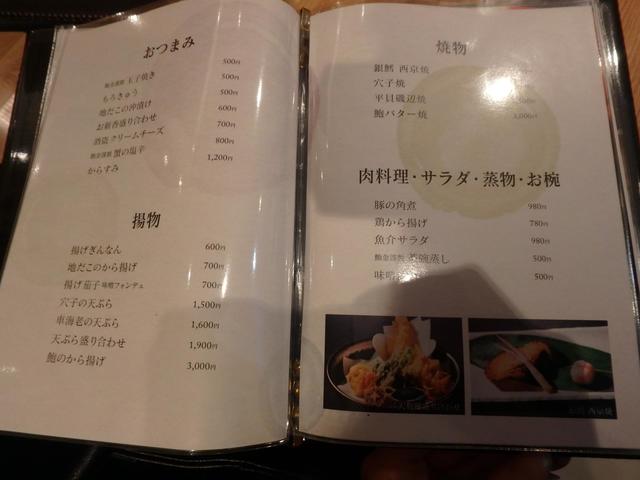 おつまみ
玉子焼き 500円
もろきゅう 500円
地だこの沖漬け 500円
お新香盛り合わせ 600円
酒盗 クリームチーズ 700円
蟹の塩辛 800円
からすみ 1,200円
揚物
揚げぎんなん 600円
地だこのから揚げ 700円
揚げ茄子 味噌フォンデュ 700円
穴子の天ぷら 1,500円
車海老の天ぷら 1,600円
天ぷら盛り合わせ 1,900円
鮑のから揚げ 3,000円
焼物
銀鱈 西京焼
穴子焼
平貝磯辺焼
鮑バター焼 3,000円
肉料理・サラダ・蒸物・お椀
豚の角煮 980円
鶏から揚げ 780円
魚介サラダ 980円
茶碗蒸し 500円
味噌 500円
西京焼